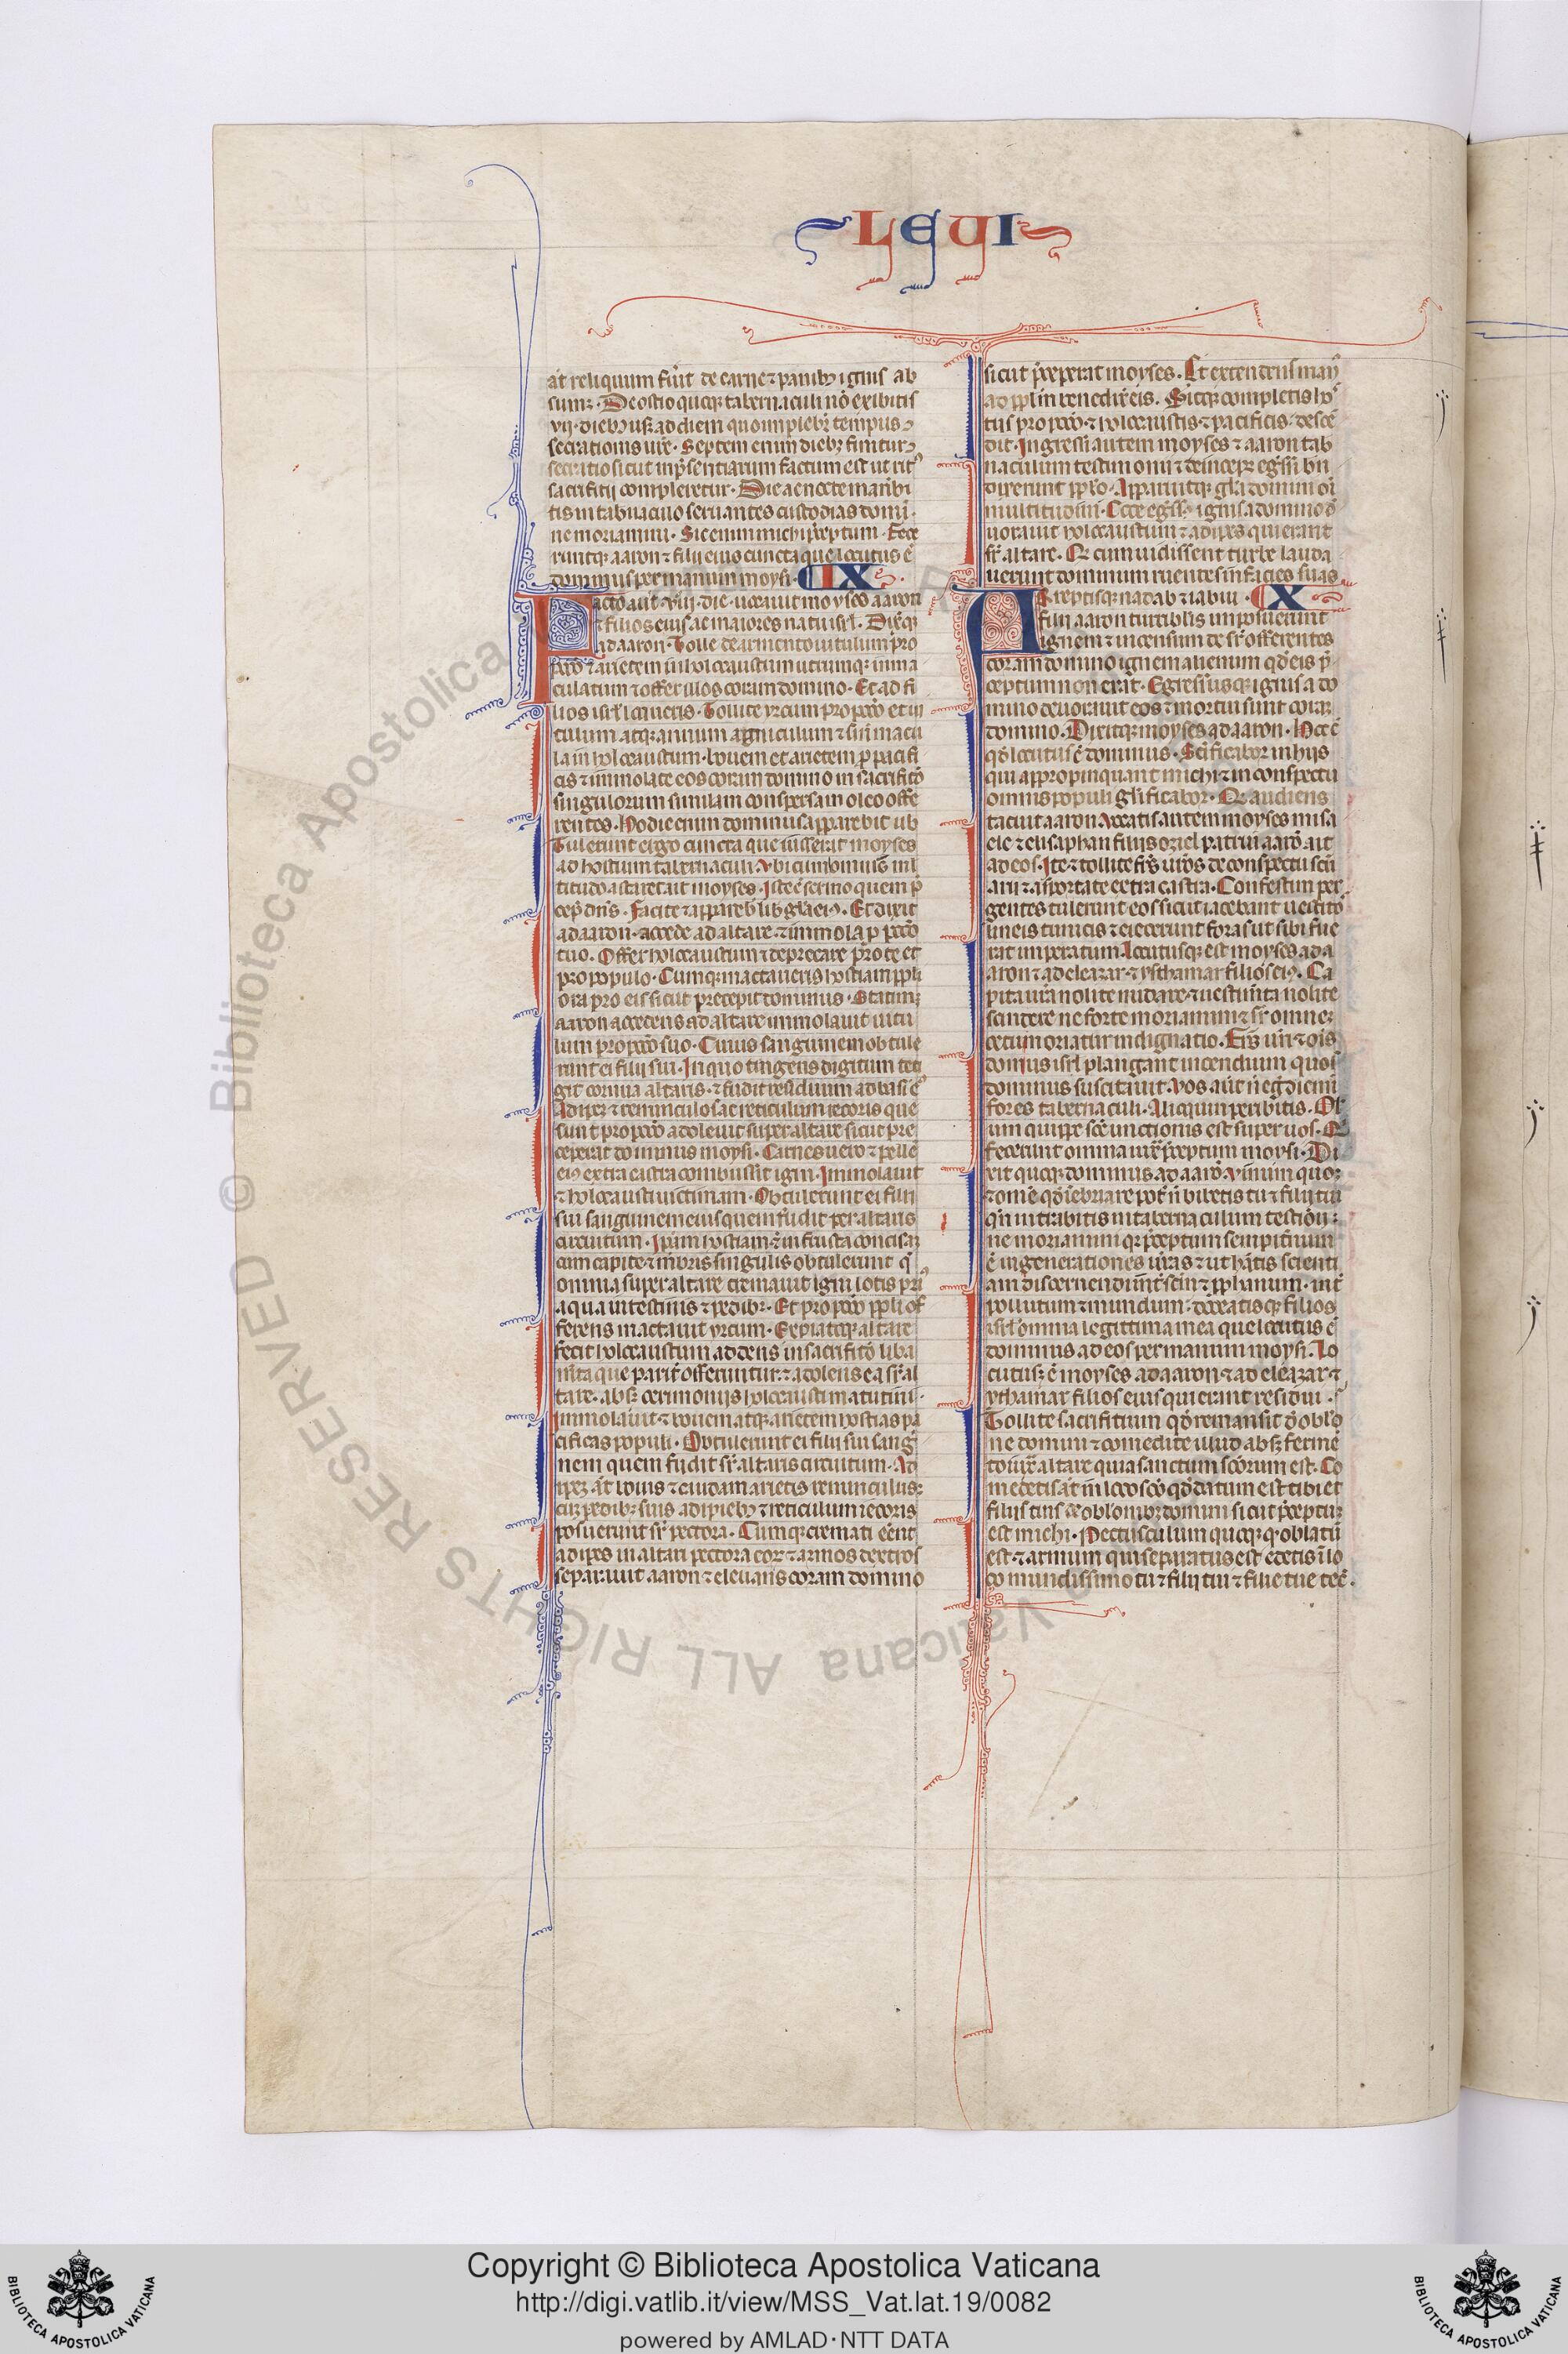 LEUI
at reliquum fu̅it de carne ⁊ panib⁊ ignis ab
sumꝫ. De ostio quoqꝫ tabernaculi no̅ exibitis
vij. diebꝫ usqꝫ ad diem quo implebit̅ tempus ꝯ
secrationis ur̅e. Septem enim diebꝫ finitur ꝯ
secratio sicut inp̅sentiarum factum est ut rit᷒
sacrificij compleretur. Die ac nocte ma̅ebi
tis in tab̅naculo seruantes custodias domi̅.
ne moriamini. Sic enim michi p̅ceptum. Fece
runtqꝫ aaron ⁊ filij eius cuncta que locutus e̅
dominus per manum moysi. IX
Facto aut̅ .viij. die. uocauit moyses aaron
⁊ filios eius ac maiores natu isrl̅. Dixitqꝫ
ad aaron. Tolle de armento uitulum pro
pecc̅o ⁊ arietem in holocaustum utrumqꝫ inma
culatum ⁊ offer illos coram domino. Et ad fi
lios isrl̅ loqueris. Tollite yrcum pro pecc̅o et ui
tulum atqꝫ agnum anniculum ⁊ sine macu
la in holocaustum. bouem et arietem p̅ pacifi
cis ⁊ immolate eos coram domino in sacrificio̅
singulorum similam conspersam oleo offe
rentes. Hodie enim dominus apparebit uob̅
Tulerunt ergo cuncta que iusserat moyses
ad hostium tabernaculi. Vbi cum omnis ml̅
titudo astaret ait moyses. Iste e̅ sermo quem p̅
cep̅ dn̅s. Facite ⁊ appareb̅ uob̅ gl̅a ei᷒. Et dixit
ad aaron. accede ad altare. ⁊ immola p̅ pecc̅o
tuo. Offer holocaustum ⁊ deprecare pro te et
pro populo. Cumqꝫ mactaueris hostiam ppl̅i
ora pro eis sicut precepit dominus. Statimqꝫ
aaron accedens ad altare immolauit uitu
lum pro pecc̅o suo. Cuius sanguinem obtule
runt ei filij sui. In quo tingens digitum teti
git cornua altaris. ⁊ fudit residuum ad basi̅ e᷒
Adipeꝫ ⁊ renunculos ac reticulum iecoris que
sunt pro pecc̅o adoleuit super altare sicut pre
ceperat dominus moysi. Carnes uero ⁊ pelle̅
ei᷒ extra castra combussit igni. Immolauit
⁊ holocausti uictimam. Obtulerunt ei filij
sui sanguinem eius quem fudit per altaris
circuitum. Ip̅am hostiam ⁊ in frusta concisaꝫ
cum capite ⁊ me̅bris singulis obtulerunt q̅
omnia super altare cremauit igni lotis pri᷒
aqua intestinis ⁊ pedibꝫ. Et pro pecc̅o ppl̅i of
ferens mactauit yrcum. Expiatoqꝫ altare
fecit holocaustum addens in sacrificio̅ liba
m̅ta que parit̅ offeruntur. ⁊ adolens ea sr̅ al
tare. absqꝫ cerimonijs holocausti matutini.
Immolauit ⁊ bouem atqꝫ arietem hostias pa
cificas populi. Obtulerunt ei filij sui sangui
nem quem fudit sr̅ altaris circuitum. Ad
ipeꝫ a̅t bouis ⁊ caudam arietis renunculosqꝫ
cuꝫ pedibꝫ suis adipibꝫ ⁊ reticulum iecoris
posuerunt sr̅ pectora. Cumqꝫ cremati ee̅nt
adipes in altari pectora eoꝝ ⁊ armos dextros
separauit aaron ⁊ eleuans coram domino
sicut p̅ceperat moyses. Et extendens man᷒
ad ppl̅m benedix̅ eis. Sicqꝫ completis hos
tiis pro pecc̅o ⁊ holocaustis ⁊ pacificis. desce̅
dit. Ingressi autem moyses ⁊ aaron tab̅
naculum testimonii ⁊ deincepꝫ eg̅ssi bn̅
dixerunt ppl̅o. Apparuitqꝫ gl̅a domini oi̅
multitudini. Ecce eg̅ss᷒ ignis a domino de
uorauit holocaustum ⁊ adipes qui erant
sr̅ altare. Qd̅ cum uidissent turbe lauda
uerunt dominum ruentes in facies suas
Arreptisqꝫ nadab ⁊ abiu X
filij aaron turiblis imposuerunt
ignem ⁊ incensum de sr̅ offerentes
coram domino ignem alienum qd̅ eis p̅
ceptum non erat. Egressusqꝫ ignis a do
mino deuorauit eos ⁊ mortui sunt coraꝫ
domino. Dixitqꝫ moyses ad aaron. Hoc e̅
qd̅ locutus e̅ dominus. Sc̅ificabor in hijs
qui appropinquant michi ⁊ in conspectu
omnis populi gl̅ificabor. Qd̅ audiens
tacuit aaron. Uocatis autem moyses misa
ele ⁊ elisaphan filijs oziel patrui aaro̅ ait
ad eos. Ite ⁊ tollite fr̅s ur̅os de conspectu sc̅u
arii ⁊ asportate extra castra. Confestim per
gentes tulerunt eos sicut iacebant uestitos
lineis tunicis ⁊ eiecerunt foras ut sibi fue
rat imperatum. Locutusqꝫ est moyses ad a
aron ⁊ ad eleazar. ⁊ ythamar filios ei᷒. Ca
pita ur̅a nolite nudare. ⁊ uestim̅ta nolite
scindere ne forte moriamini ⁊ sr̅ omneꝫ
cetum oriatur indignatio. Fr̅s ur̅i ⁊ o̅is
domus isrl̅ plangant incendium quod
dominus suscitauit. Vos aut̅ n̅ eg̅diemi̅
fores tabernaculi. Alioquin peribitis. Ole
um quippe sc̅e unctionis est super uos. Qui
fecerunt omnia iuxta p̅ceptum moysi. Di
xit quoqꝫ dominus ad aaro̅. Vinum quoqꝫ
⁊ om̅e qd̅ i̅ebriare pot̅ n̅ bibetis tu ⁊ filij tui
qn̅ intrabitis in tabernaculum testio̅ij.
ne moriamini qꝛ p̅ceptum sempit̅num
e̅ in generationes ur̅as ⁊ ut ha̅tis scienti
am discernendi int̅ sc̅m ⁊ pphanum. int̅
pollutum ⁊ mundum. doceatisqꝫ filios
isrl̅ omnia legittima mea que locutus e̅
dominus ad eos per manum moysi. Lo
cutusqꝫ e̅ moyses ad aaron ⁊ ad eleazar. ⁊
ythamar filios eius qui erant residui.
Tollite sacrificium qd̅ remansit de obl̅o
ne domini ⁊ comedite illud absqꝫ ferme̅
to iux̅ altare quia sanctum sc̅orum est. Co
medetis a̅t in loco sc̅o qd̅ datum est tibi et
filijs tuis de obl̅onibꝫ domini sicut p̅ceptuꝫ
est michi. Pectusculum quoqꝫ qd̅ oblatu̅
est. ⁊ armum qui separatus est edetis i̅ lo
co mundissimo tu ⁊ filij tui ⁊ filie tue tecu̅.
© Biblioteca Apostolica Vaticana ALL RIGHTS RESERVED
Copyright © Biblioteca Apostolica Vaticana
http://digi.vatlib.it/view/MSS_Vat.lat.19/0082
powered by AMLAD·NTT DATA
BIBLIOTECA APOSTOLICA VATICANA
BIBLIOTECA APOSTOLICA VATICANA